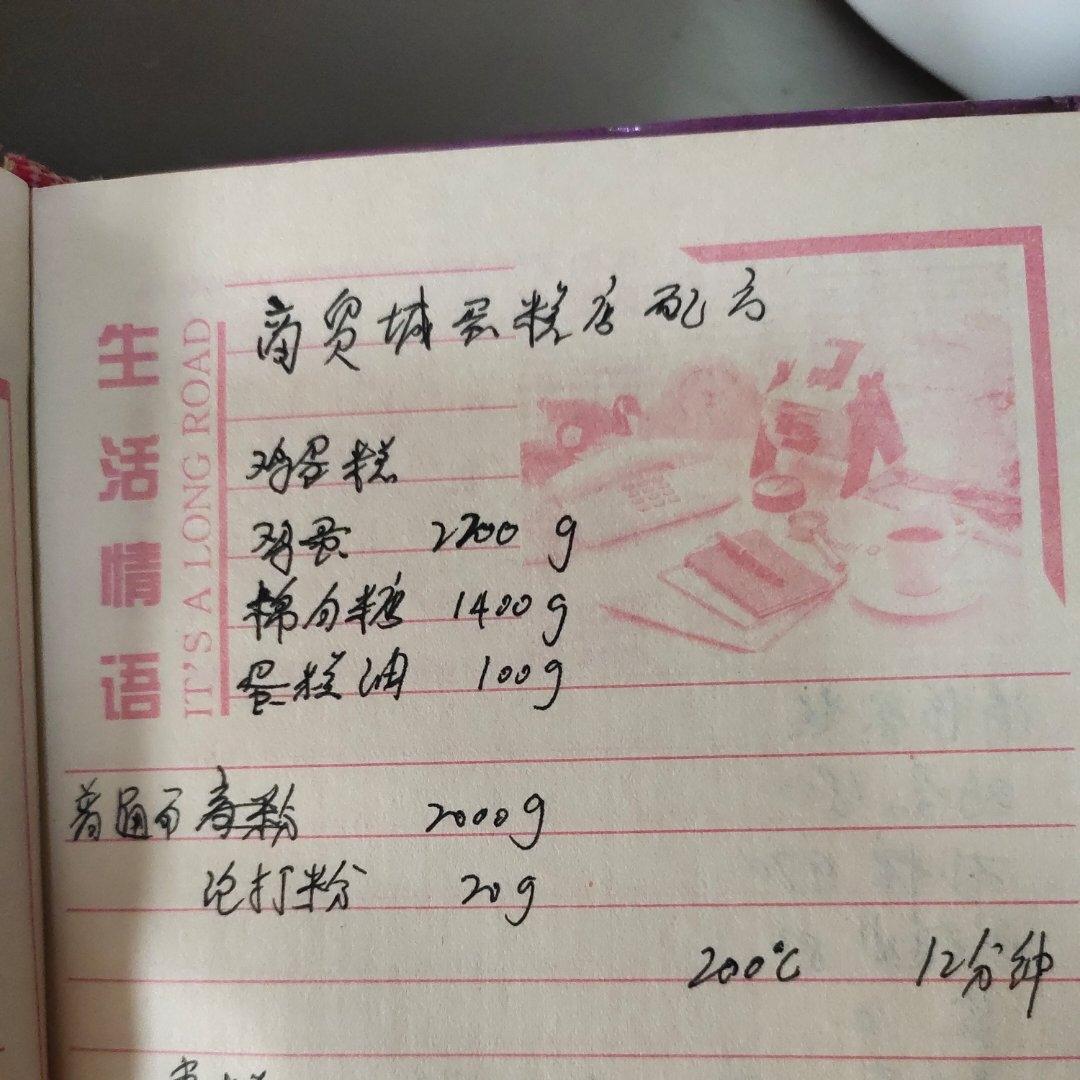 生活情语
IT'S A LONG ROAD
商贸城蛋糕店配方
鸡蛋糕
鸡蛋 2700g
棉白糖 1400g
蛋糕油 100g
普通面粉 2000g
泡打粉 20g
200℃ 12分钟